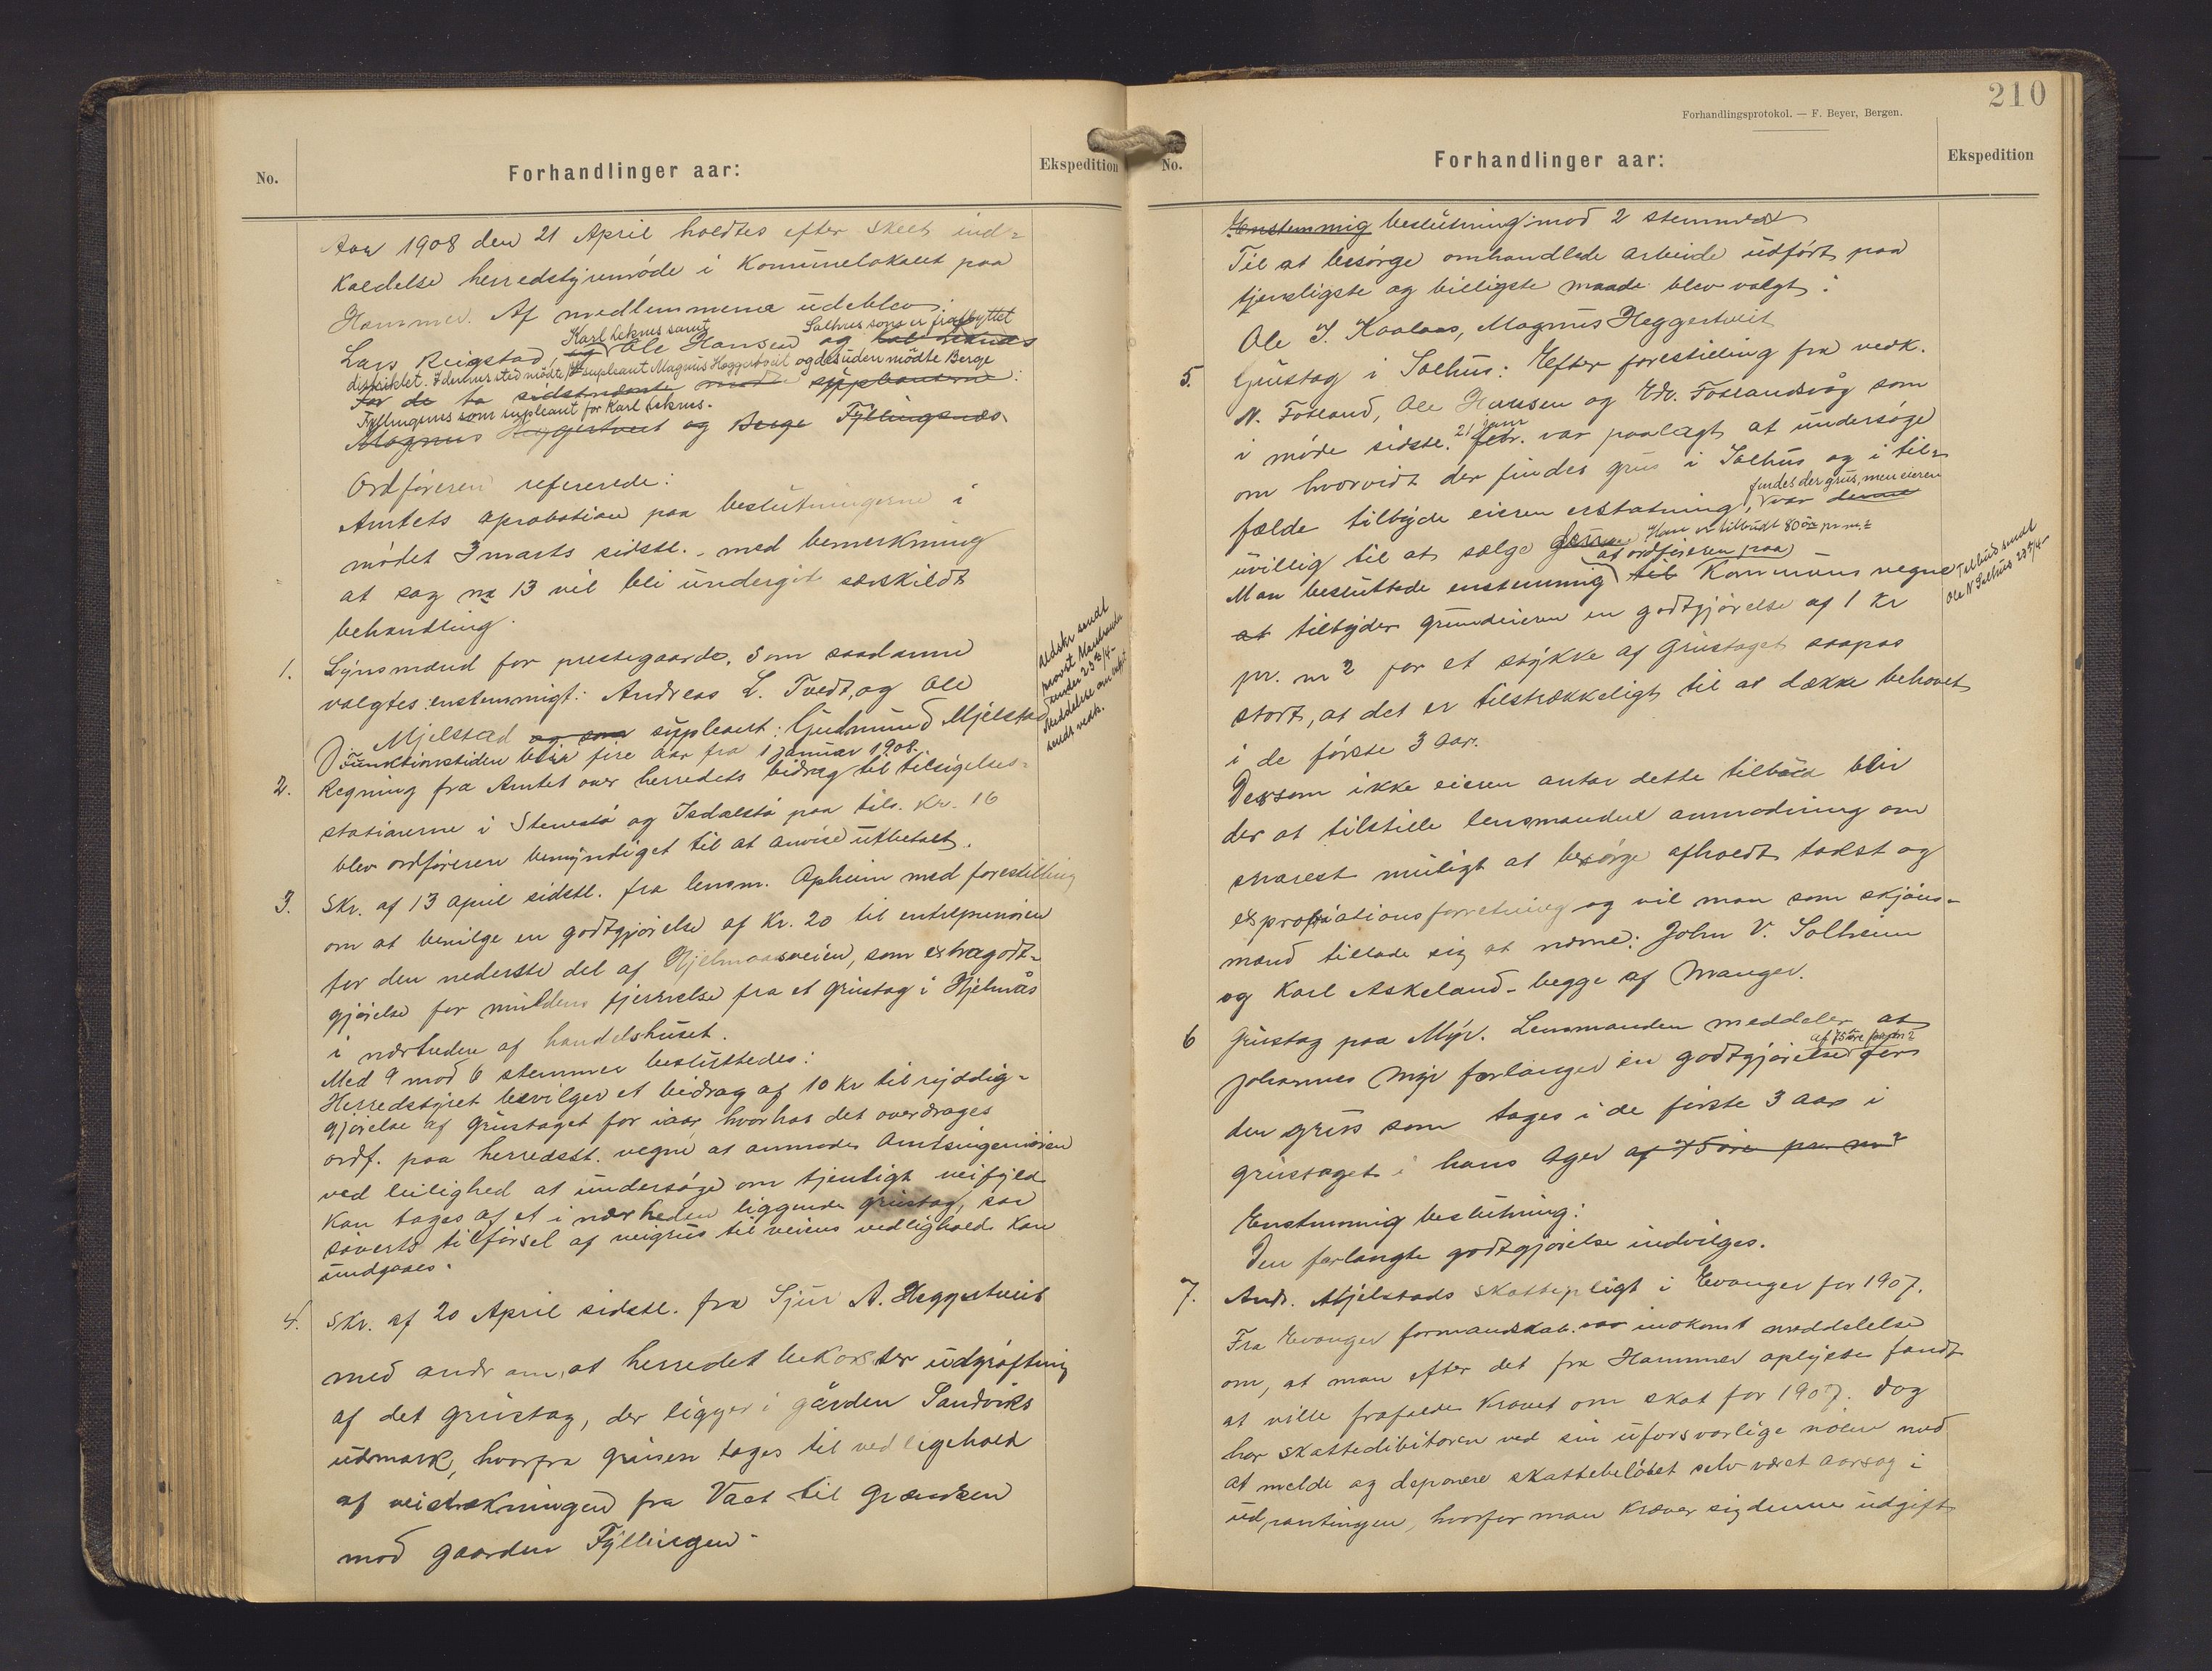 No.
Forhandlinger aar:
Ekspedition
Aar 1908 den 21 April holdtes efter skeet ind=
kaldelse herredstyremøde i Kommunelokalet paa
Hammer. Af medlemmerne udeblev:
Karl Leknes samt
Salhus som er fraflyttet
Lars Reigstad, og Ole Hansen og Kal Leknes
distriktet. I denhus sted mødte supleant Magnus Heggertveit og desuden mødte Berge
For de to sidstnævnte mødte suppleanterne:
Fyllingsnes som supleant for Karl Leknes.
Magnus Heggertveit og Berge Fyllingsnæs.
Ordføreren refererede:
Amtets aprobation paa beslutningerne i
mødet 3 marts sidstl. - med bemerkning
at sag no 13 vil bli undergit særskildt
behandling.
1. Synsmænd for prestegaarde. Som saadanne
valgtes enstemmigt: Andreas L. Tvedt, og Ole
Mjelstad og som supleant: Gudmund Mjelstad
Funktionstiden blir fire aar fra 1 januar 1908.
2. Regning fra Amtet over herredets bidrag til tilsigelses-
stationerne i Stenestø og Isdalstø paa tils. Kr. 16
blev ordføreren bemyndiget til at anvise utbetalt.
3. Skr. af 13 april sidstl. fra lensm. Opheim med forestilling
om at bevilge en godtgjørelse af Kr. 20 til entreprenøren
for den nederste del af Hjelmaasveien, som extragodt-
gjørelse for muldens fjernelse fra et grustag i Hjelmås
i nærheden af handelshuset.
Med 9 mod 6 stemmer besluttedes:
Herredstyret bevilger et bidrag af 10 Kr til ryddig-
gjørelse af grustaget for iaar hvorhos det overdrages
ordf. paa herredsst. vegne at anmode Amtsingeniøren
ved leilighed at undersøge om tjenligt veifyld
kan tages af et i nærheden liggende grustag, saa
søverts tilførsel af veigrus til veiens vedlighold kan
undgaaes.
4. Skr. af 20 April sidstl. fra Sjur A. Heggertveit
med andr. om, at herredet bekoster udgrøftning
af det grustag, der ligger i gården Sandviks
udmark, hvorfra grusen tages til vedligehold
af veistrækningen fra Vaet til Grændsen
mod gaarden Fyllingen -
Udskr. sendt
under 23/4-
Meddelelse om valget
sendt vedk.
210
Forhandlingsprotokol. — F. Beyer, Bergen.
No.
Forhandlinger aar:
Ekspedition
Enstemmig beslutning mod 2 stemmer
Til at besørge omhandlede arbeide udført paa
tjenligste og billigste maade blev valgt:
Ole J. Kaalaas, Magnus Heggertveit
5. Grustag i Salhus: Efter forestilling fra vedk.
N. Fosland, Ole Hansen og Edv. Foslandsvåg som
21 janr
i møde sidste. febr. var paalagt at undersøge
om hvorvidt der findes grus i Salhus og i til=
findes der grus, men eieren
fælde tilbyde eieren erstatning, var denne
uvillig til at sælge Han er tilbudt 80 øre pr m.2
at ordføreren paa
Man besluttede enstemmig til Kommunens vegne
at tilbyder grundeieren en godtgjørelse af 1 Kr
pr. m2 for et stykke af grustaget saapas
stort, at det er tilstrækkeligt til at dække behovet
i de første 3 aar.
Dersom ikke eieren antar dette tilbud blir
der at tilstille lensmanden anmodning om
snarest muligt at besørge afholdt takst og
expropriationsforretning og vil man som skjøns-
mænd tillade sig at nævne: John V. Solheim
og Karl Askeland - begge af Manger.
Tilbud sendt
Ole N Salhus 23/4-
6 Grustag paa Myr. Lensmanden meddeler at
af 75 øre pr m2
Johannes Myr forlanger en godtgjørelse for
den grus som tages i de første 3 aar i
grustaget i hans Ager af 75 øre pr. m2
Enstemmig beslutning:
Den forlangte godtgjørelse indvilges.
7. Andr. Mjelstads skattepligt i Evanger for 1907.
Fra Evanger formandskab. var indkomt meddelelse
om, at man efter det fra Hammer oplyste fandt
at ville frafalde kravet om skat for 1907. Dog
har skattedebitoren ved sin uforsvarlige nølen med
at melde og deponere skattebeløbet selv været aarsag i
udpantingen, hvorfor man kræver sig denne udgift